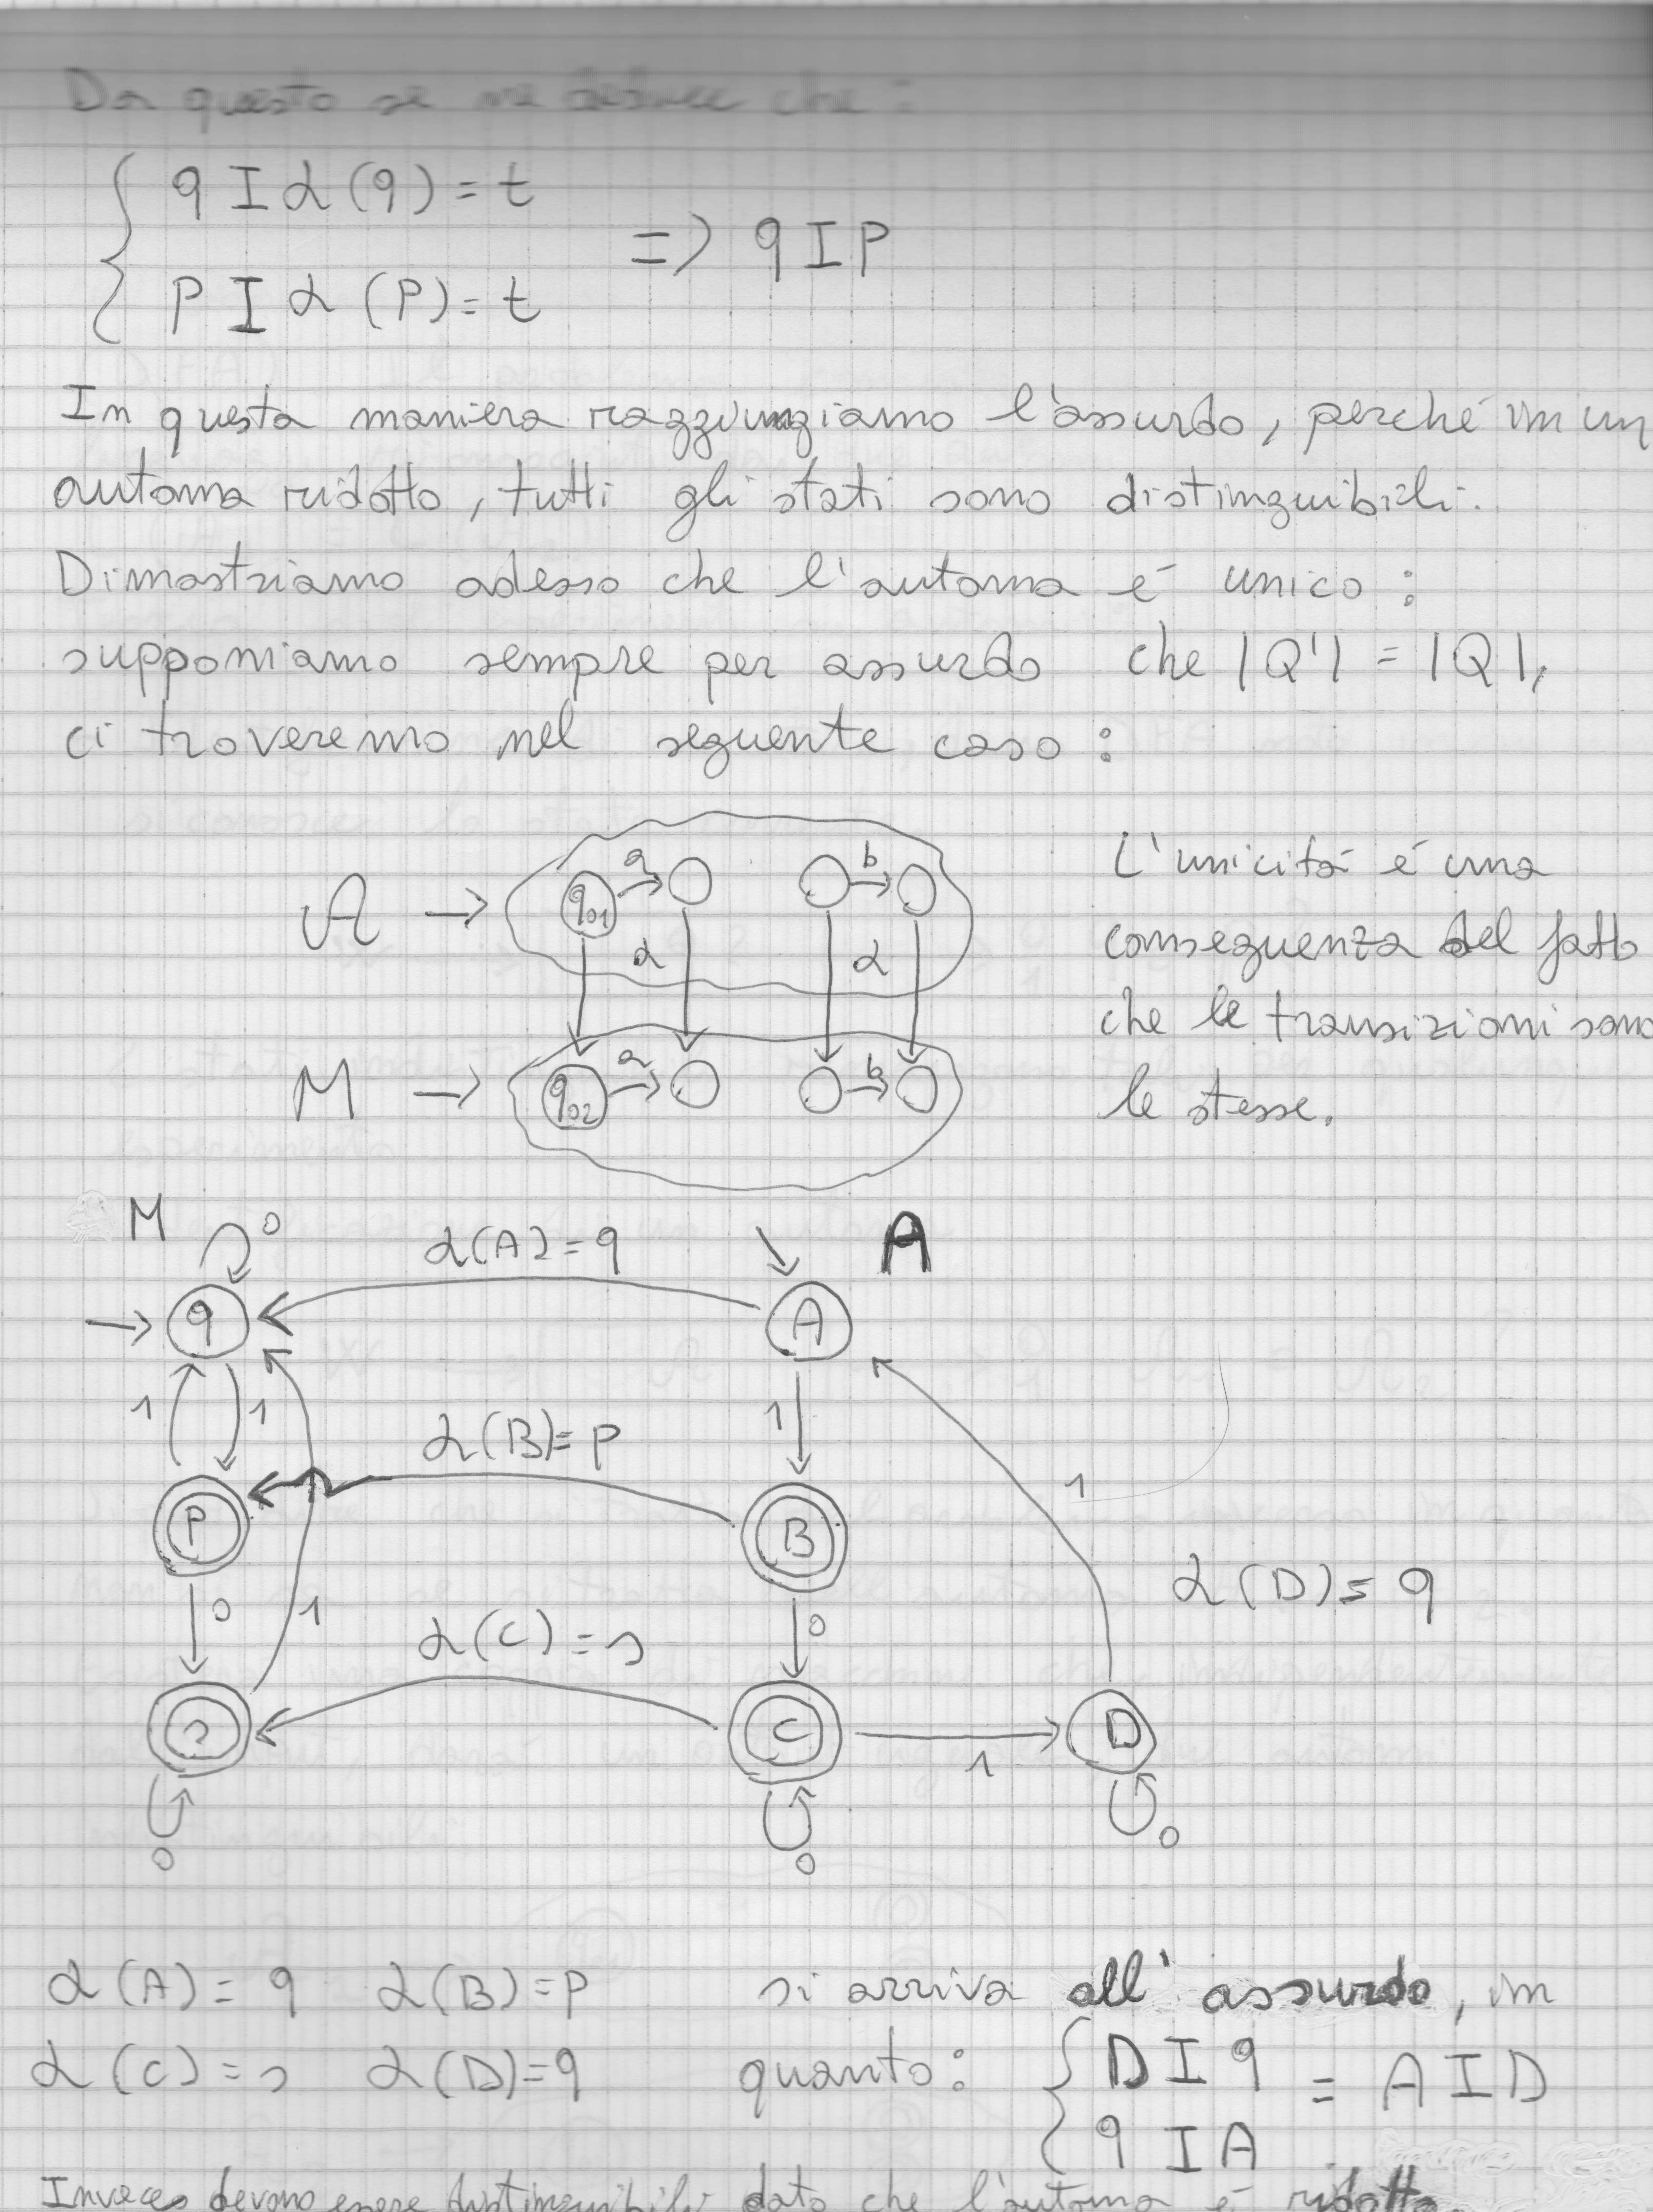 Da questo se ne deduce che:
q I α(q) = t
=> q I P
P I α(P) = t
In questa maniera raggiungiamo l'assurdo, perché in un
automa ridotto, tutti gli stati sono distinguibili.
Dimostriamo adesso che l'automa é unico:
supponiamo sempre per assurdo che |Q'| = |Q|,
ci troveremo nel seguente caso:
A → q01 a b
α α
M → q02 a b
L'unicitá é una
conseguenza del fatto
che le transizioni sono
le stesse.
M 0 α(A) = q A
q A
1 1 α(B) = P 1 1
P B
0 1 α(C) = s 0 α(D) = q
s C 1 D
0 0 0
α(A) = q α(B) = P si arriva all'assurdo, in
α(C) = s α(D) = q quanto: D I q = A I D
q I A
Invece devono essere distinguibili dato che l'automa é ridotto.